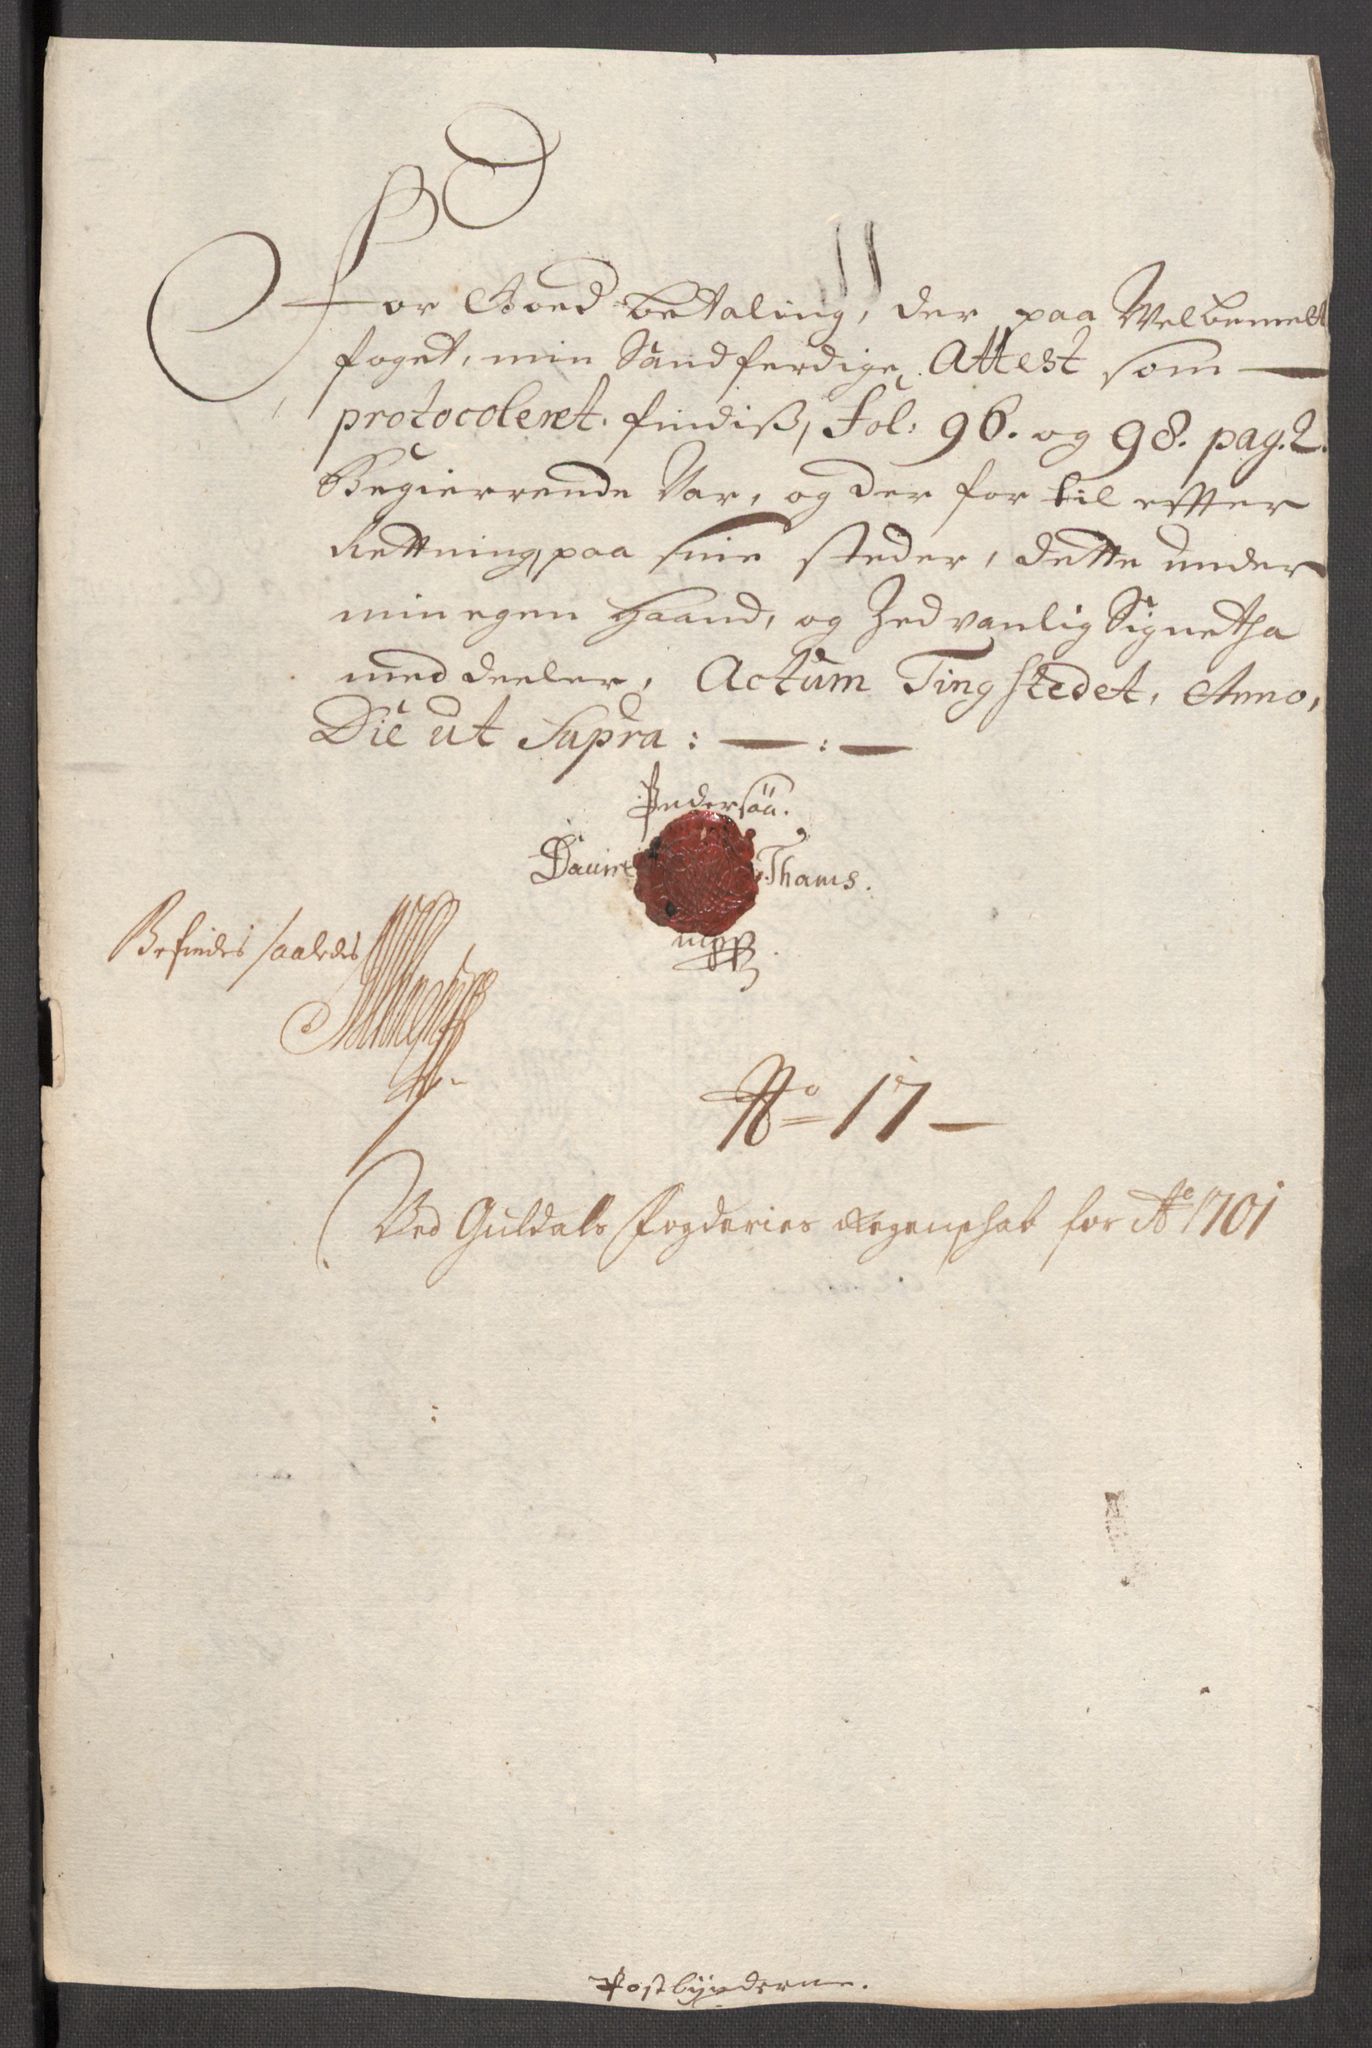 For Goed betaling, der paa Welbemelt
foget, min Sandferdige, Attest som
protocoleret. findiß, Fol: 96. og 98. pag. 2.
Begierrende Var, og der for til effter
Rettning, paa sine steder, dette under
min egen Haand, og Zedvanlig Signetha
meddeeler, Actum Tingstedet, Anno,
Die ut Supra: — : —
Pedersøn.
Thams.
mpp
Befindes saaledes
No 17 —
Ved Guldals Fogderies Regenschab for Ao 1701
Postbynderne.